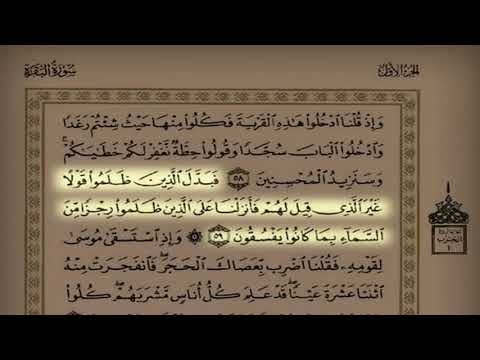 الجزء الأول
سورة البقرة
وَإِذْ قُلْنَا ادْخُلُوا هَٰذِهِ الْقَرْيَةَ فَكُلُوا مِنْهَا حَيْثُ شِئْتُمْ رَغَدًا
وَادْخُلُوا الْبَابَ سُجَّدًا وَقُولُوا حِطَّةٌ نَغْفِرْ لَكُمْ خَطَايَاكُمْ ۚ
وَسَنَزِيدُ الْمُحْسِنِينَ ٥٨ فَبَدَّلَ الَّذِينَ ظَلَمُوا قَوْلًا
غَيْرَ الَّذِي قِيلَ لَهُمْ فَأَنْزَلْنَا عَلَى الَّذِينَ ظَلَمُوا رِجْزًا مِنَ
السَّمَاءِ بِمَا كَانُوا يَفْسُقُونَ ٥٩ ۞ وَإِذِ اسْتَسْقَىٰ مُوسَىٰ
لِقَوْمِهِ فَقُلْنَا اضْرِبْ بِعَصَاكَ الْحَجَرَ ۖ فَانْفَجَرَتْ مِنْهُ
اثْنَتَا عَشْرَةَ عَيْنًا ۖ قَدْ عَلِمَ كُلُّ أُنَاسٍ مَشْرَبَهُمْ ۖ كُلُوا